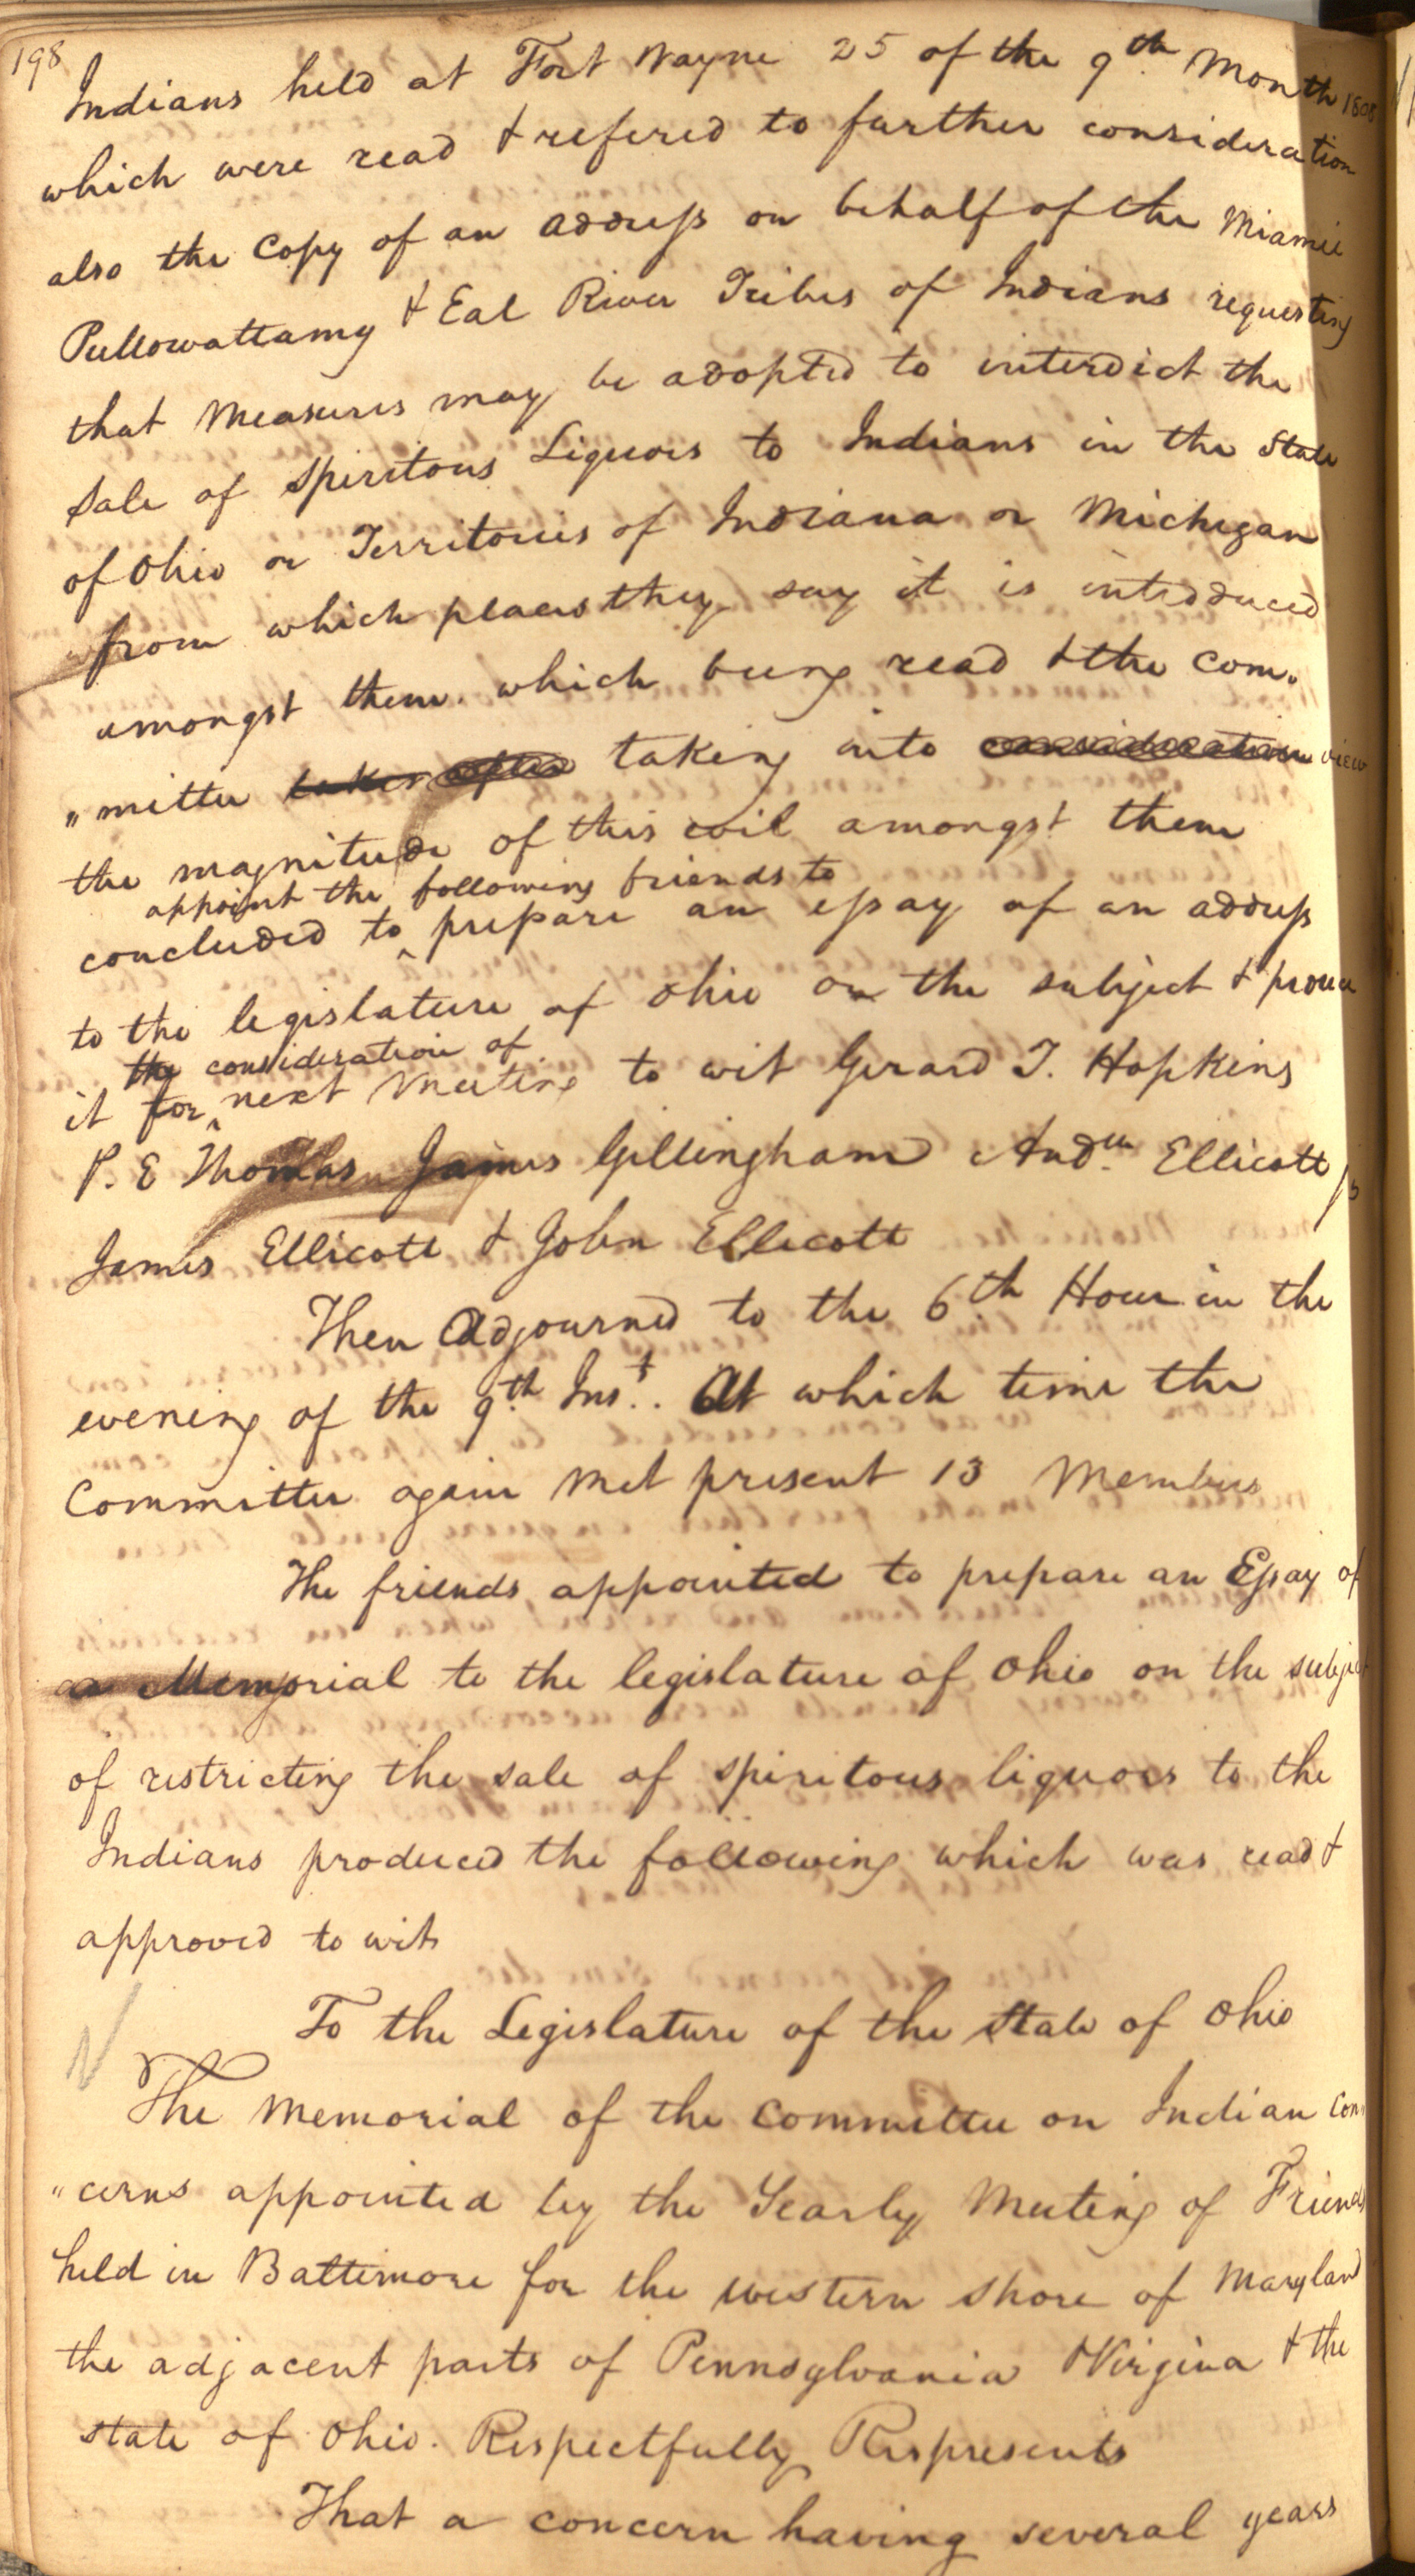 198
Indians held at Fort Wayne 25 of the 9th Month 1808
which were read & refered to further consideration
also the Copy of an address on behalf of the Miamie
Puttowattamy & Eal River Tribes of Indians requesting
that Measures may be adopted to interdict the
Sale of Spiritous Liquors to Indians in the State
of Ohio or Territories of Indiana or Michigan
from which places they say it is introduced
amongst them. which being read & the Com.
"mittee taken after taking into consideration view
the magnitude of this evil amongst them
appoint the following friends to
concluded to ‸ prepare an essay of an address
to the legislature of Ohio on the subject &
the consideration of
it for ‸ next Meeting to wit Gerard T. Hopkins
P. E Thomas James Gillingham Andw Ellicott Jr
James Ellicott & John Ellicott
Then Adjourned to the 6th Hour in the
evening of the 9th Inst. At which time the
Committee again Met present 13 Members
The friends appointed to prepare an Essay of
a Memorial to the legislature of Ohio on the subject
of restricting the sale of spiritous liquors to the
Indians produced the following which was read &
approved to wit
To the Legislature of the State of Ohio
The Memorial of the Committee on Indian Con
"cerns appointed by the Yearly Meeting of Friends
held in Baltimore for the western Shore of Maryland
the adjacent parts of Pennsylvania & Virginia & the
state of Ohio. Respectfully Respresents
That a concern having several years